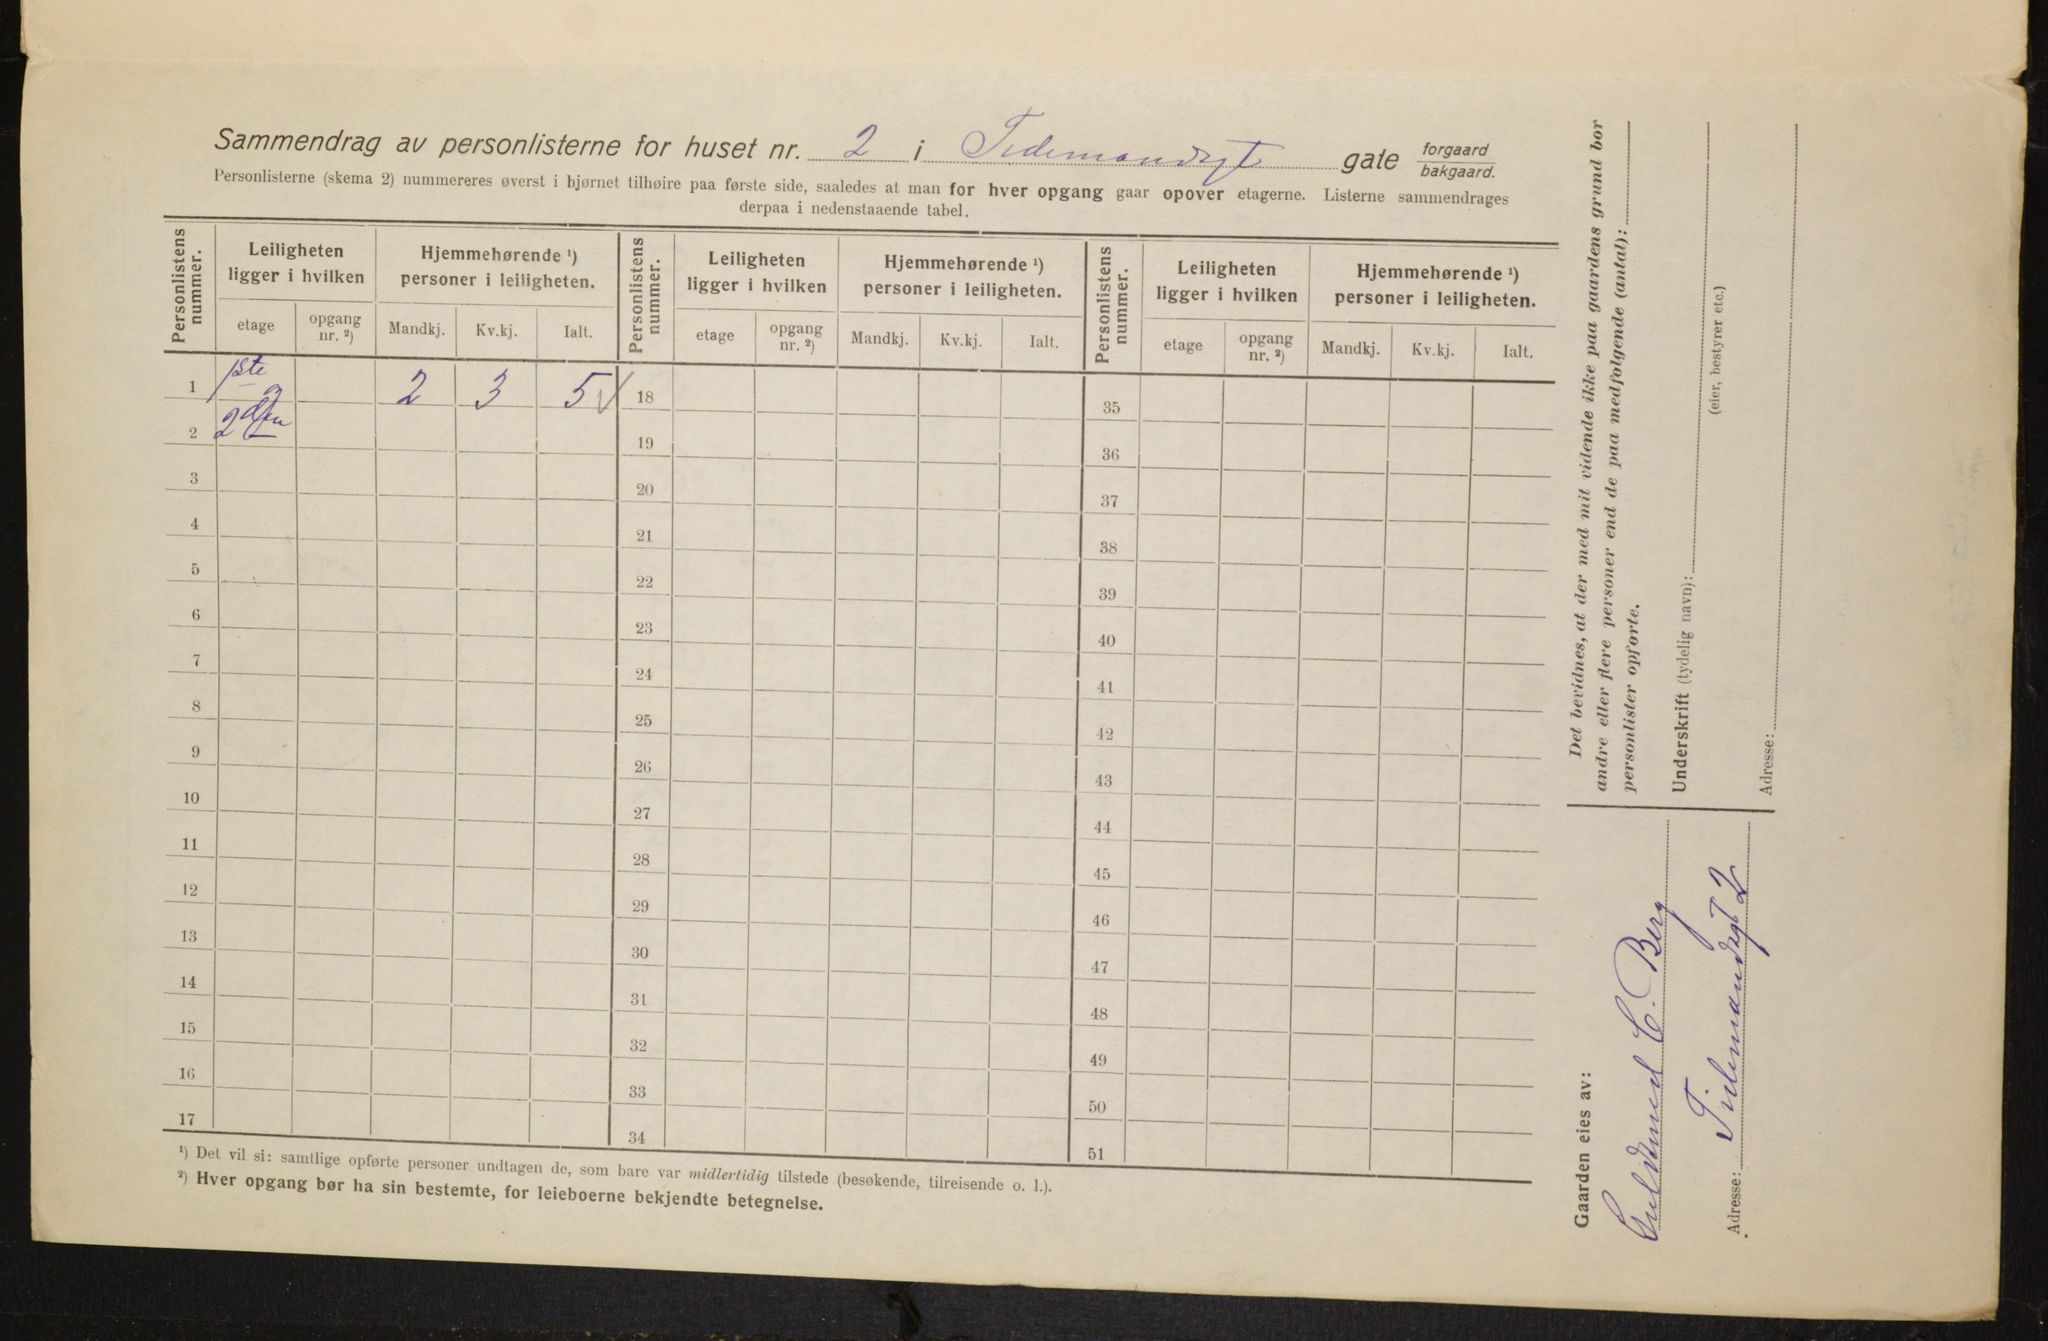 Sammendrag av personlisterne for huset nr. 2 i Tidemandsgt. gate forgaard
bakgaard.
Personlisterne (skema 2) nummereres øverst i hjørnet tilhøire paa første side, saaledes at man for hver opgang gaar opover etagerne. Listerne sammendrages
derpaa i nedenstaaende tabel.
Personlistens nummer. Leiligheten ligger i hvilken Hjemmehørende ¹) personer i leiligheten. Personlistens nummer. Leiligheten ligger i hvilken Hjemmehørende ¹) personer i leiligheten. Personlistens nummer. Leiligheten ligger i hvilken Hjemmehørende ¹) personer i leiligheten.
etage opgang nr. ²) Mandkj. Kv.kj. Ialt. etage opgang nr. ²) Mandkj. Kv.kj. Ialt. etage opgang nr. ²) Mandkj. Kv.kj. Ialt.
1 1ste og 2 3 5 √ 18 35
2 2den 19 36
3 20 37
4 21 38
5 22 39
6 23 40
7 24 41
8 25 42
9 26 43
10 27 44
11 28 45
12 29 46
13 30 47
14 31 48
15 32 49
16 33 50
17 34 51
¹) Det vil si: samtlige opførte personer undtagen de, som bare var midlertidig tilstede (besøkende, tilreisende o. l.).
²) Hver opgang bør ha sin bestemte, for leieboerne bekjendte betegnelse.
Det bevidnes, at der med mit vidende ikke paa gaardens grund bor
andre eller flere personer end de paa medfølgende (antal):
personlister opførte.
Underskrift (tydelig navn):
(eier, bestyrer etc.)
Adresse:
Gaarden eies av:
C. Berg
Adresse: Tidemandsgt 2